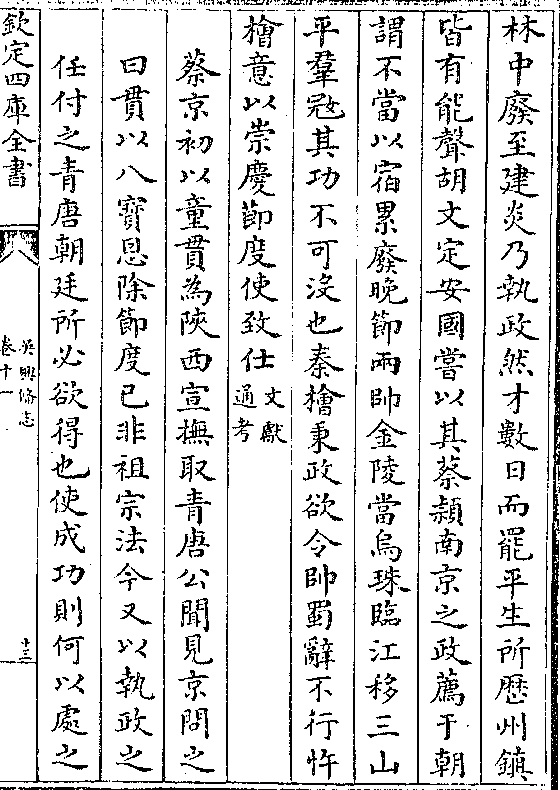 林中廢至建炎乃執政然才數日而罷平生所歴州鎮
皆有能聲胡文定安國嘗以其蔡潁南京之政薦于朝
謂不當以宿累廢晚節兩帥金陵當烏珠臨江移三山
平羣寇其功不可沒也秦檜秉政欲令帥蜀辭不行忤
檜意以崇慶節度使致仕文獻通考
蔡京初以童貫為陜西宣撫取青唐公聞見京問之
曰貫以八寶恩除節度已非祖宗法今又以執政之
任付之青唐朝廷所必欲得也使成功則何以處之
欽定四庫全書
吳興備志
卷十一
十三